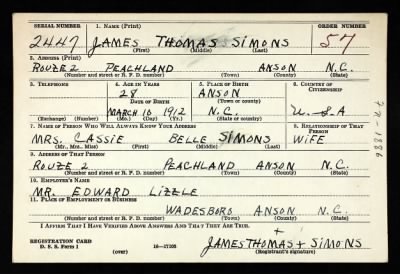 SERIAL NUMBER 1. NAME (Print) ORDER NUMBER
2447 JAMES THOMAS SIMONS 57
(First) (Middle) (Last)
2. ADDRESS (Print)
ROUZE 2 PEACHLAND ANSON N.C.
(Number and street or R. F. D. number) (Town) (County) (State)
3. TELEPHONE 4. AGE IN YEARS 5. PLACE OF BIRTH 6. COUNTRY OF CITIZENSHIP
28 ANSON
DATE OF BIRTH (Town or county)
MARCH 10 1912 N.C. U.S.A
(Exchange) (Number) (Mo.) (Day) (Yr.) (State or country)
7. NAME OF PERSON WHO WILL ALWAYS KNOW YOUR ADDRESS 8. RELATIONSHIP OF THAT PERSON
MRS. CASSIE BELLE SIMONS WIFE
(Mr., Mrs., Miss) (First) (Middle) (Last)
9. ADDRESS OF THAT PERSON
ROUZE 2 PEACHLAND ANSON N.C.
(Number and street or R. F. D. number) (Town) (County) (State)
10. EMPLOYER'S NAME
MR. EDWARD LIZZLE
11. PLACE OF EMPLOYMENT OR BUSINESS
WADESBORO ANSON N.C.
(Number and street or R. F. D. number) (Town) (County) (State)
I AFFIRM THAT I HAVE VERIFIED ABOVE ANSWERS AND THAT THEY ARE TRUE.
+
REGISTRATION CARD JAMES THOMAS + SIMONS
D. S. S. Form 1 (over) 16—17105 (Registrant's signature)